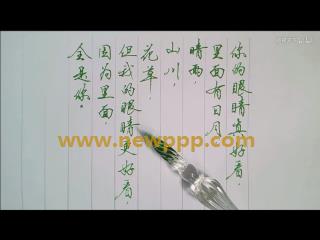 你的眼睛真好看，
里面有日月，
晴雨，
山川，
花草，
但我的眼睛更好看，
因为里面，
全是你。
www.newppp.com